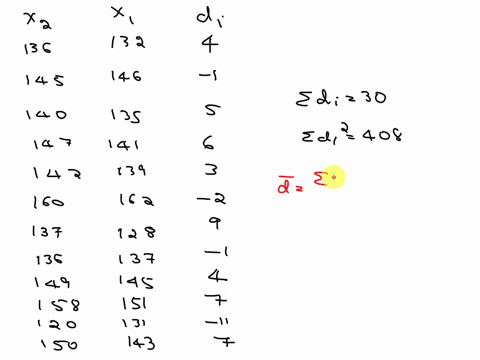 x₂ x₁ dᵢ
136 132 4
145 146 -1
140 135 5
147 141 6
142 139 3
160 162 -2
137 128 9
136 137 -1
149 145 4
158 151 7
120 131 -11
150 143 7
Σdᵢ = 30
Σdᵢ² = 408
d̅ = Σ